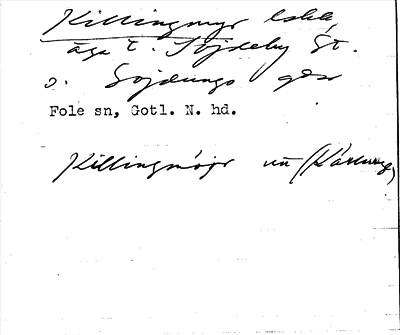 Killingmyr lska,
äga t. Sojdeby St.
o. Sojdungs gdar
Fole sn, Gotl. N. hd.
Killingmöjr un (Källunge)